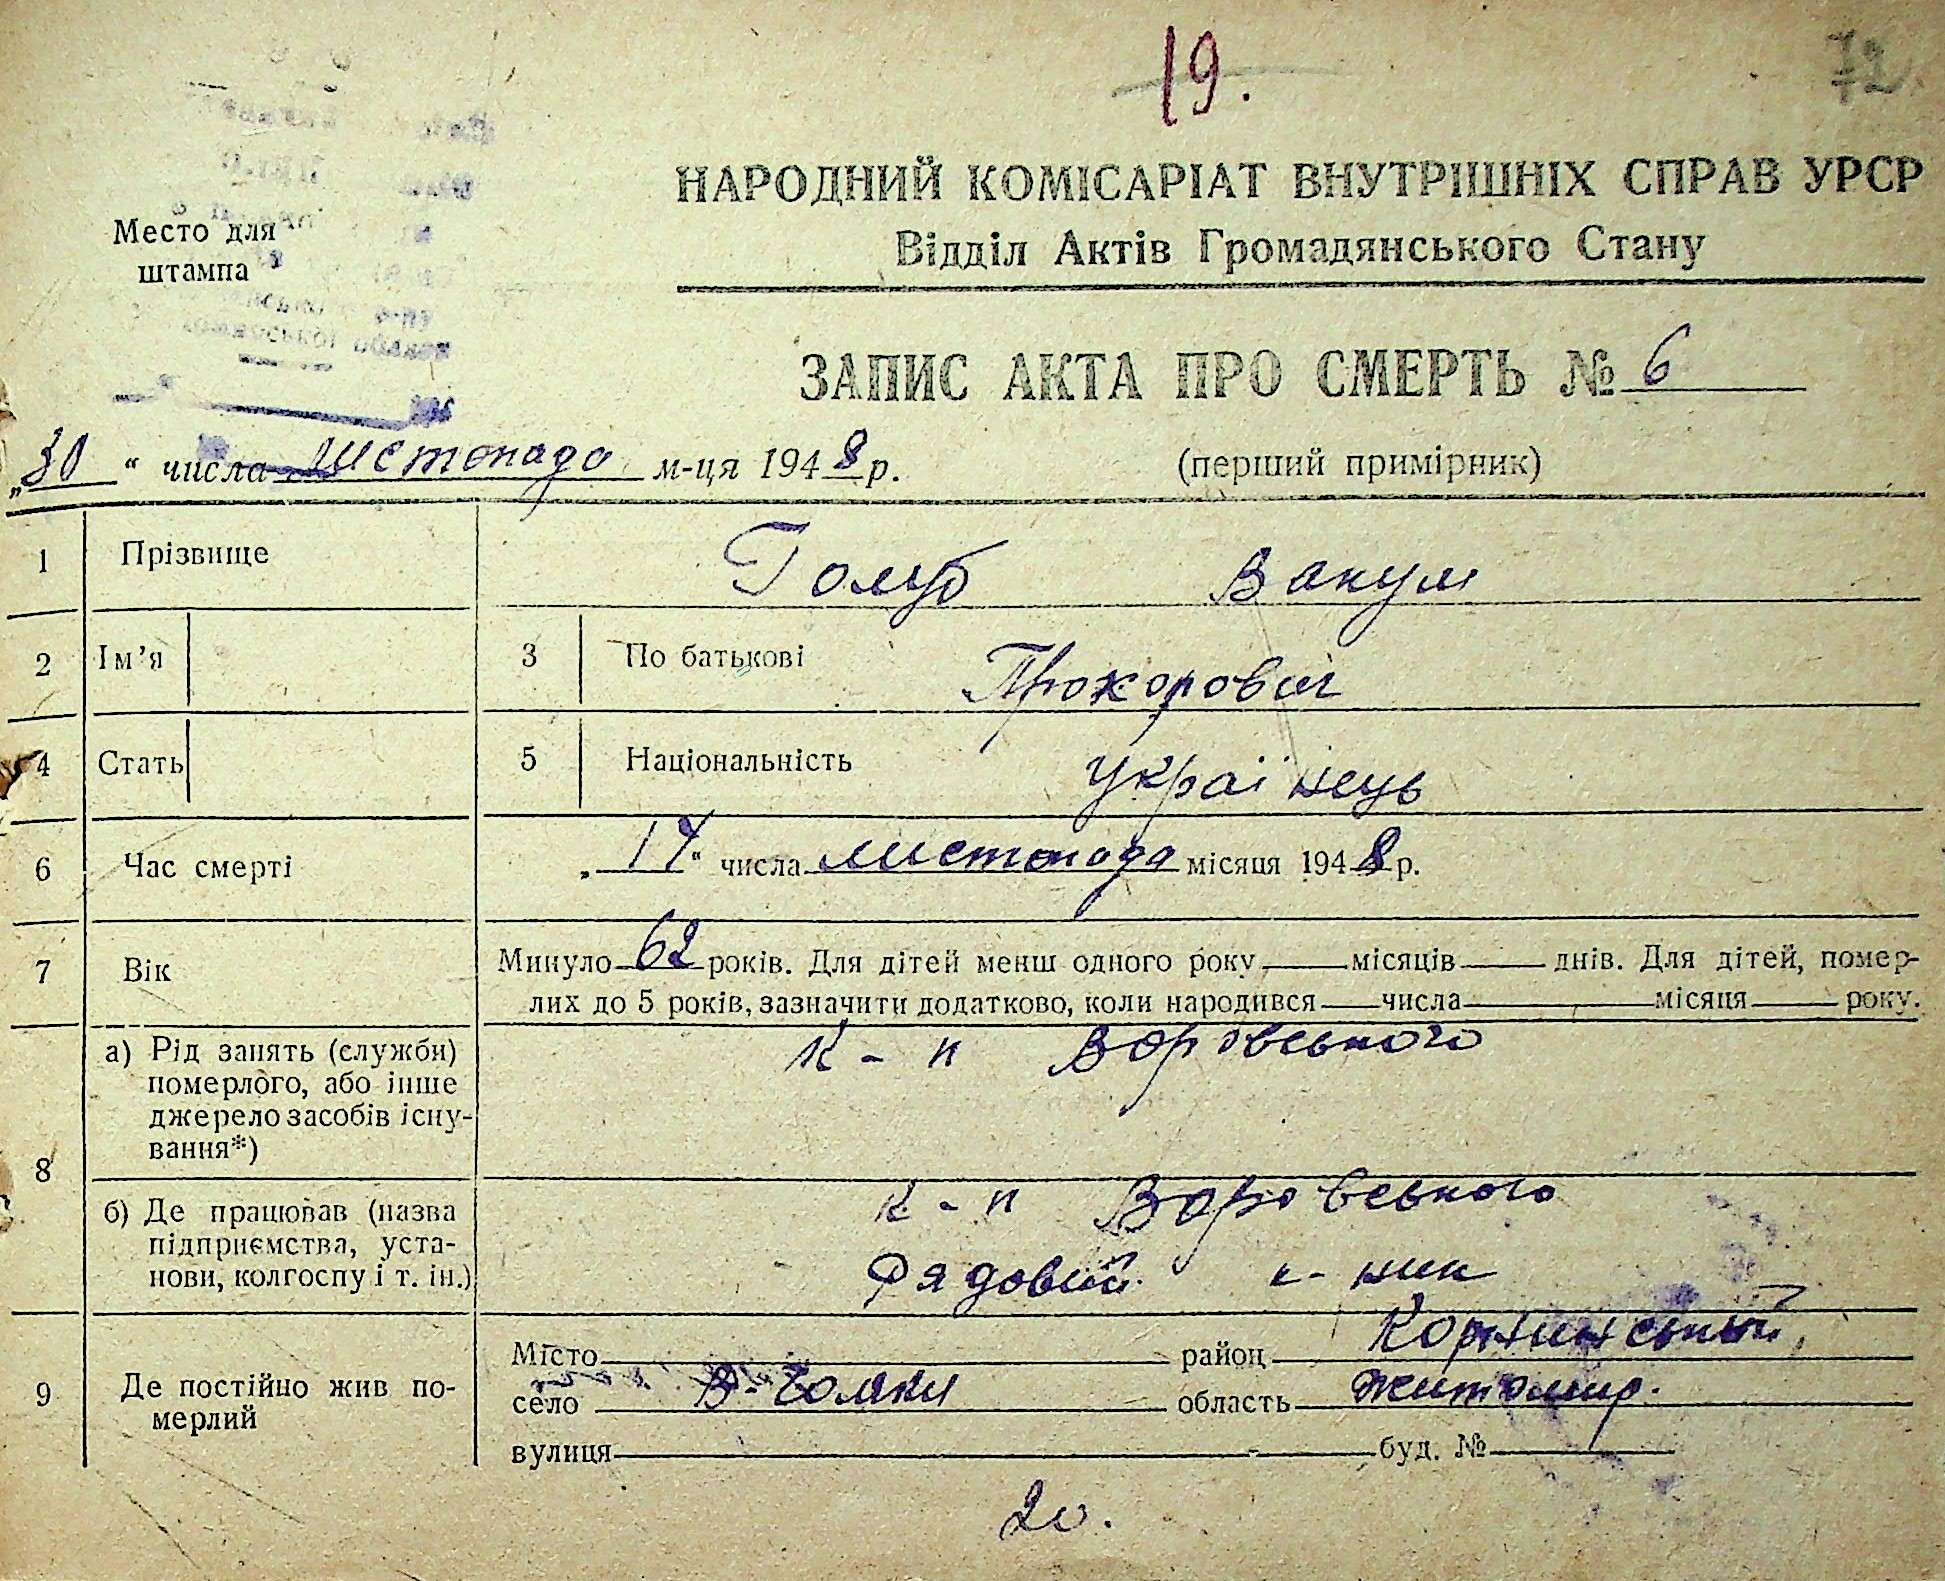 19.
НАРОДНИЙ КОМІСАРІАТ ВНУТРІШНІХ СПРАВ УРСР
Відділ Актів Громадянського Стану
Место для
штампа
ЗАПИС АКТА ПРО СМЕРТЬ № 6
„30“ числа листопада м-ця 1948 р.
(перший примірник)
1 Прізвище Голуб Вакум
2 Ім’я 3 По батькові Прохорович
4 Стать 5 Національність українець
6 Час смерті „17“ числа листопада місяця 1948 р.
7 Вік Минуло 62 років. Для дітей менш одного року місяців днів. Для дітей, помер-
лих до 5 років, зазначити додатково, коли народився числа місяця року.
8 а) Рід занять (служби) померлого, або інше джерело засобів існу-вання*) к-п Воровського
б) Де працював (назва підприємства, уста-нови, колгоспу і т. ін.) к-п Воровського
Рядовий к-ник
9 Де постійно жив по-мерлий
Місто район Корнинський
село В-Голяки область Житомир.
вулиця буд. №
20.